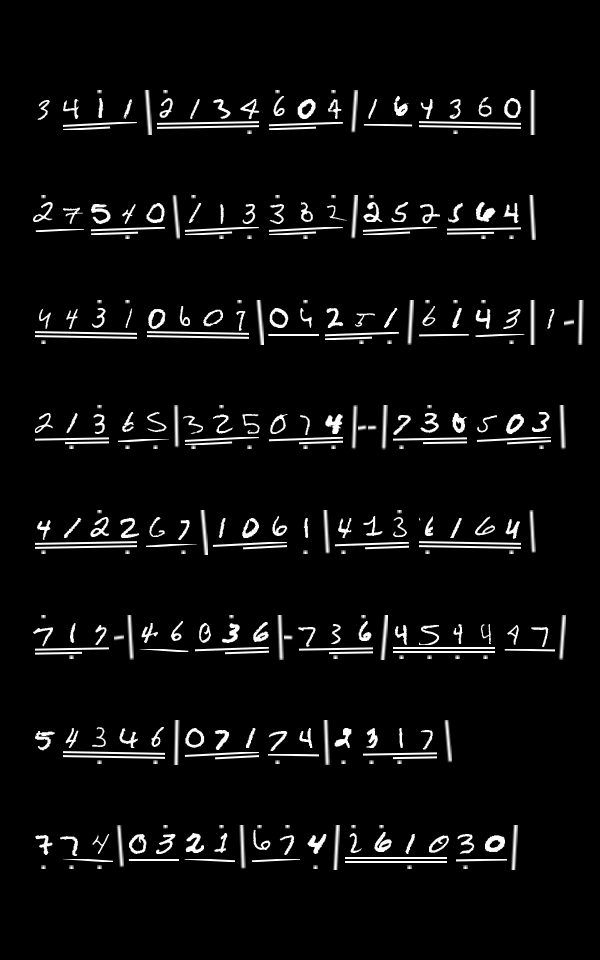 3 4 1 1 | 2 1 3 4 6 0 4 | 1 6 4 3 6 0 |
2 7 5 4 0 | 1 1 3 3 3 2 | 2 5 2 5 6 4 |
4 4 3 1 0 6 0 7 | 0 4 2 5 1 | 6 1 4 3 | 1 - |
2 1 3 6 5 | 3 2 5 0 7 4 | - - | 7 3 0 5 0 3 |
4 1 2 2 6 7 | 1 0 6 1 | 4 1 3 6 1 6 4 |
7 1 7 - | 4 6 0 3 6 | - 7 3 6 | 4 5 4 4 4 7 |
5 4 3 4 6 | 0 7 1 7 4 | 2 3 1 7 |
7 7 4 | 0 3 2 1 | 6 7 4 | 2 6 1 0 3 0 |